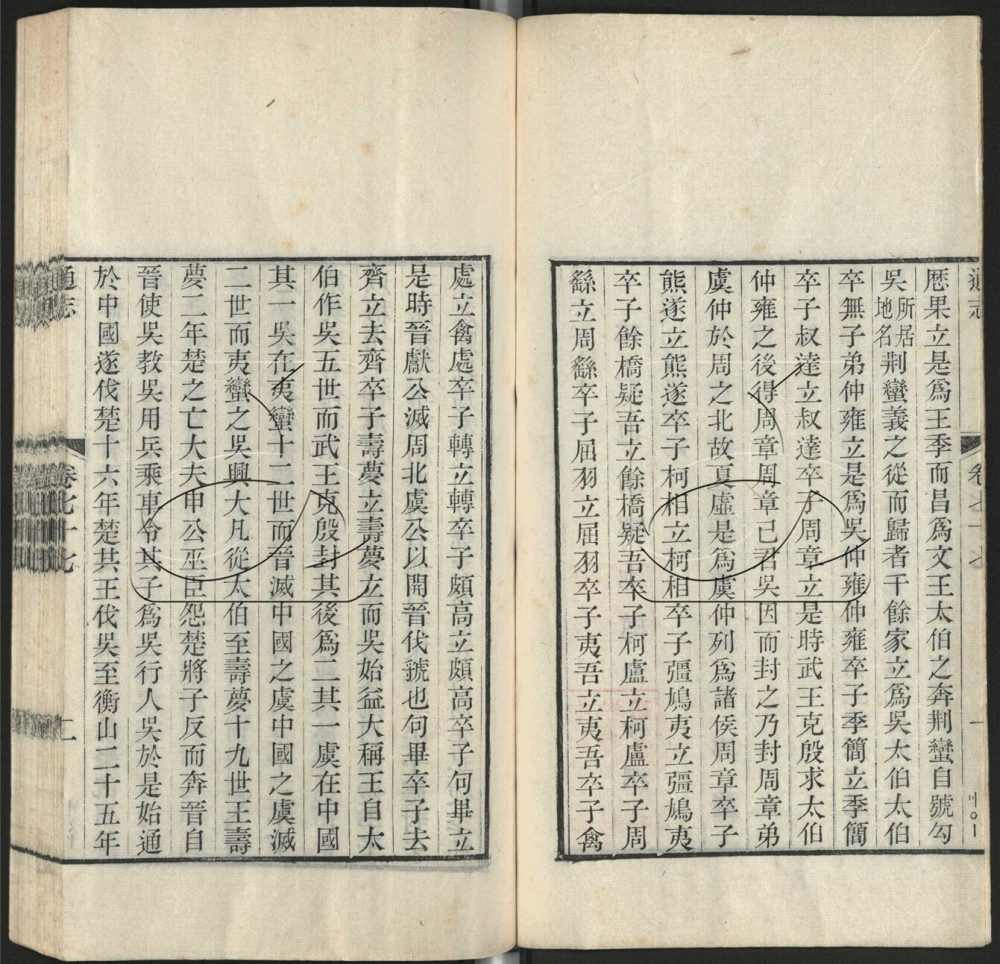 通志
一
川〇一
厯果立是爲王季而昌爲文王太伯之奔荆蠻自號勾
吳所居地名荆蠻義之從而歸者千餘家立爲吳太伯太伯
卒無子弟仲雍立是爲吳仲雍仲雍卒子季簡立季簡
卒子叔達立叔達卒子周章立是時武王克殷求太伯
仲雍之後得周章周章已君吳因而封之乃封周章弟
虞仲於周之北故夏虛是爲虞仲列爲諸侯周章卒子
熊遂立熊遂卒子柯相立柯相卒子彊鳩夷立彊鳩夷
卒子餘橋疑吾立餘橋疑吾卒子柯盧立柯盧卒子周
繇立周繇卒子屈羽立屈羽卒子夷吾立夷吾卒子禽
處立禽處卒子轉立轉卒子頗高立頗高卒子句畢立
是時晉獻公滅周北虞公以開晉伐虢也句畢卒子去
齊立去齊卒子壽夢立壽夢立而吳始益大稱王自太
伯作吳五世而武王克殷封其後爲二其一虞在中國
其一吳在夷蠻十二世而晉滅中國之虞中國之虞滅
二世而夷蠻之吳興大凡從太伯至壽夢十九世王壽
夢二年楚之亡大夫申公巫臣怨楚將子反而奔晉自
晉使吳教吳用兵乘車令其子爲吳行人吳於是始通
於中國遂伐楚十六年楚共王伐吳至衡山二十五年
通志
卷七十七
二